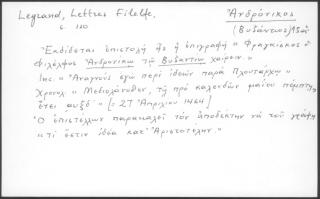 Legrand, Lettres Filelfe, Ἀνδρόνικος
σ. 120 (Βυζάντιος) 15ος
Ἐκδίδεται ἐπιστολὴ ἧς ἡ ἐπιγραφὴ "Φραγκίσκος ὁ
Φιλέλφος Ἀνδρονίκῳ τῷ Βυζαντίῳ χαίρειν".
Inc. "Ἀναγνοὺς ἐγὼ περὶ ἰδεῶν παρὰ Πλουτάρχου
χρονολ "Μεδιολάνοθεν, τῇ πρὸ καλενδῶν μαΐου πέμπτῃ
ἔτει αυξδ" = [27 Ἀπριλίου 1464]
Ὁ ἐπιστέλλων παρακαλεῖ τὸν ἀποδέκτην νὰ τοῦ γράψῃ
"τί ἐστιν ἰδέα κατ' Ἀριστοτέλην".